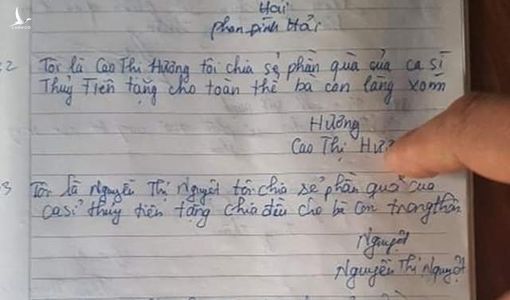 Hải
phan Đình Hải
2 Tôi là Cao Thị Hương tôi chia sẻ phần quà của ca sĩ
Thủy Tiên tặng cho toan thể bà con lăng xom
Hương
Cao Thị Hươ
3 Tôi là Nguyễn Thị Nguyệt tôi chia sẻ phần quà của
ca sĩ thuy tiên tặng chia đều cho bà con trong thôn
Nguyệt
Nguyễn Thị Nguyệt